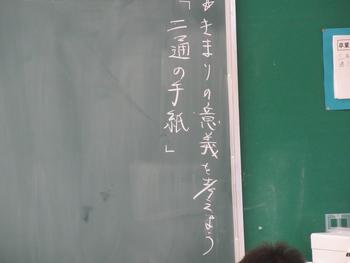 きまりの意義を考えよう
「二通の手紙」
卒業